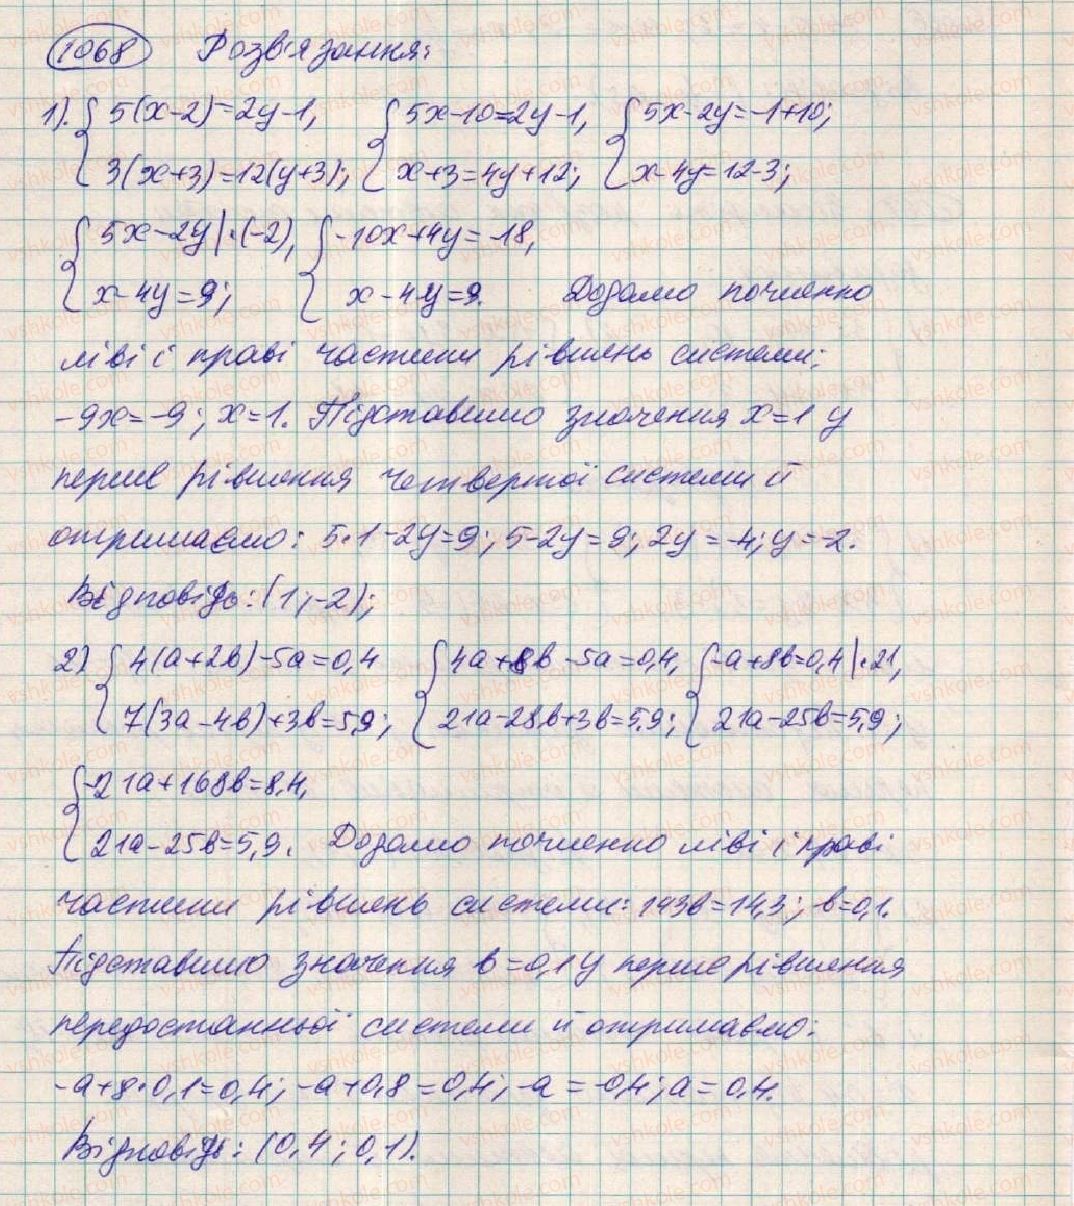 1068 Розв'язання:
1). { 5(x-2)=2y-1, { 5x-10=2y-1, { 5x-2y=-1+10;
3(x+3)=12(y+3); x+3=4y+12; x-4y=12-3;
{ 5x-2y|·(-2), { -10x+4y=-18,
x-4y=9; x-4y=9. Додамо почленно
ліві і праві частини рівнянь системи:
-9x=-9; x=1. Підставимо значення x=1 у
перше рівняння четвертої системи й
отримаємо: 5·1-2y=9; 5-2y=9; 2y=-4; y=-2.
Відповідь: (1;-2);
2) { 4(a+2b)-5a=0,4 { 4a+8b-5a=0,4, { -a+8b=0,4|·21,
7(3a-4b)+3b=5,9; 21a-28b+3b=5,9; 21a-25b=5,9;
{ -21a+168b=8,4,
21a-25b=5,9. Додамо почленно ліві і праві
частини рівнянь системи: 143b=14,3; b=0,1.
Підставимо значення b=0,1 у перше рівняння
передостанньої системи й отримаємо:
-a+8·0,1=0,4; -a+0,8=0,4; -a=-0,4; a=0,4.
Відповідь: (0,4; 0,1).